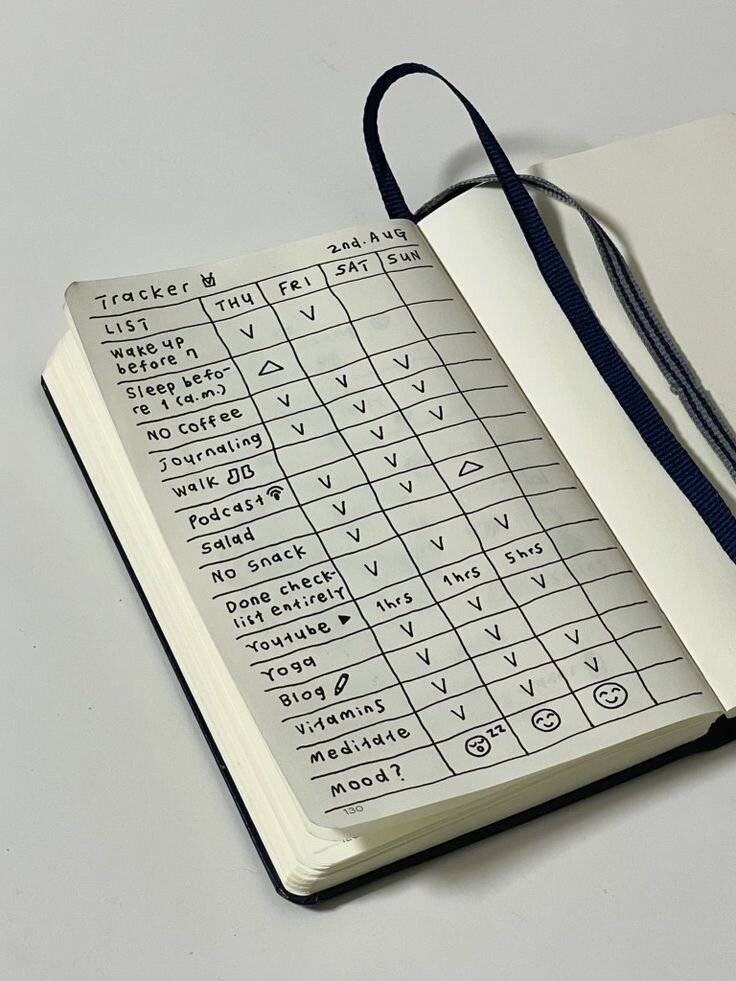 2nd. AUG
Tracker
LIST THU FRI SAT SUN
Wake up V V
before 7
Sleep befo- △
re 1 (a.m.)
NO Coffee V V V
Journaling V V V
Walk V V
Podcast V V
Salad V V △
NO Snack V
Done check- V V V
list entirely
Youtube 1hrs 1hrs 5hrs
Yoga V V V
Blog V V
Vitamins V V V
Meditate V V V
Mood? zz
130